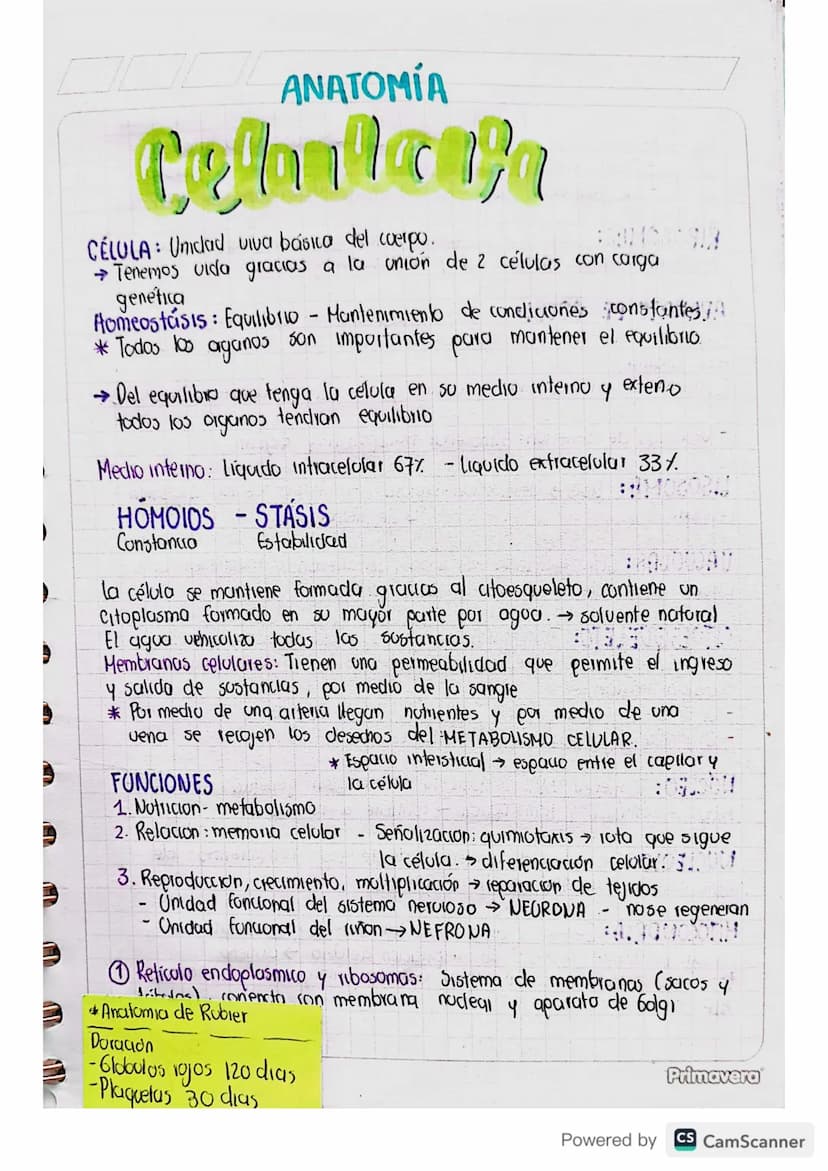 ANATOMÍA
Celular
CÉLULA: Unidad viva básica del cuerpo.
→ Tenemos vida gracias a la unión de 2 células con carga
genética
Homeostásis: Equilibrio - Mantenimiento de condiciones constantes.
* Todos los órganos son importantes para mantener el equilibrio
→ Del equilibrio que tenga la célula en su medio interno y externo
todos los órganos tendrán equilibrio
Medio interno: Líquido intracelular 67% - Líquido extracelular 33%.
HÓMOIOS - STÁSIS
Constancia Estabilidad
La célula se mantiene formada gracias al citoesqueleto, contiene un
citoplasma formado en su mayor parte por agua. → solvente natural
El agua vehiculiza todas las sustancias.
Membranas celulares: Tienen una permeabilidad que permite el ingreso
y salida de sustancias, por medio de la sangre
* Por medio de una arteria llegan nutrientes y por medio de una
vena se recojen los desechos del METABOLISMO CELULAR.
* Espacio intersticial → espacio entre el capilar y
la célula
FUNCIONES
1. Nutricion - metabolismo
2. Relacion: memoria celular - Señalizacion: quimiotaxis → ruta que sigue
la célula. → diferenciación celular.
3. Reproduccion, crecimiento, multiplicación → reparacion de tejidos
- Unidad funcional del sistema nervioso → NEURONA - no se regeneran
- Unidad funcional del riñon → NEFRONA
① Retículo endoplasmico y ribosomas: Sistema de membranas (sacos y
conecta con membrana nuclear y aparato de Golgi
* Anatomia de Rubier
Duración
- Glóbulos rojos 120 dias
- Plaquetas 30 dias
Primavera
Powered by CS CamScanner